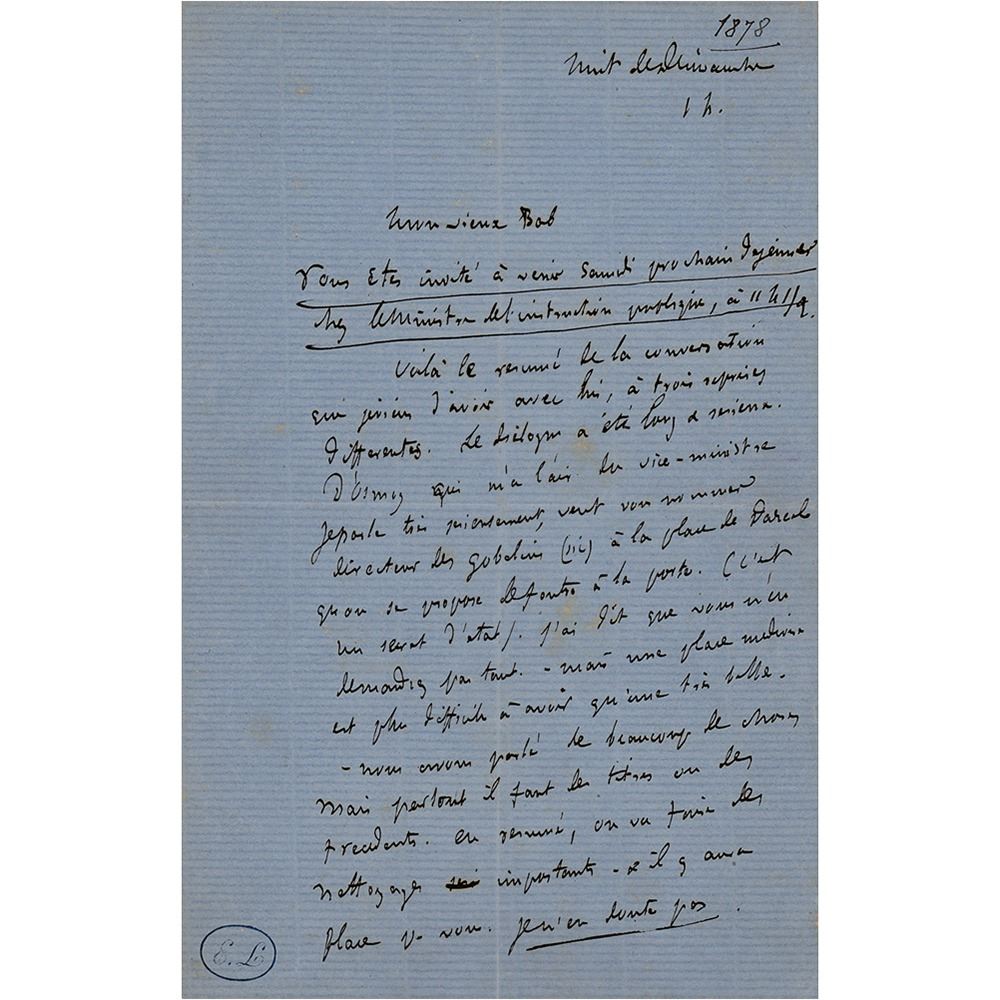 1878
Nuit de Dimanche
1 h.
Mon vieux Bob
Vous etes invité à venir Samedi prochain dejeuner
chez le Ministre de l'instruction publique, à 11 h 1/2.
Voilà le resumé de la conversation
que je viens d'avoir avec lui, à trois reprises
differentes. Le dialogue a été long & serieux.
D'Osmoy qui m'a l'air du vice-ministre
Je parle très serieusement, veut vous nommer
directeur des gobelins (sic) à la place de Darcel
qu'on se propose de foutre à la porte. (C'est
un secret d'état). J'ai dit que vous n'en
demandiez pas tant. - mais une place mediocre
est plus difficile à avoir qu'une très belle.
- nous avons parlé de beaucoup de choses
Mais partout il faut des titres ou des
precedents. en resumé, on va faire des
nettoyages importants - & il y aura
place p. vous. Je n'en doute pas.
E. L.